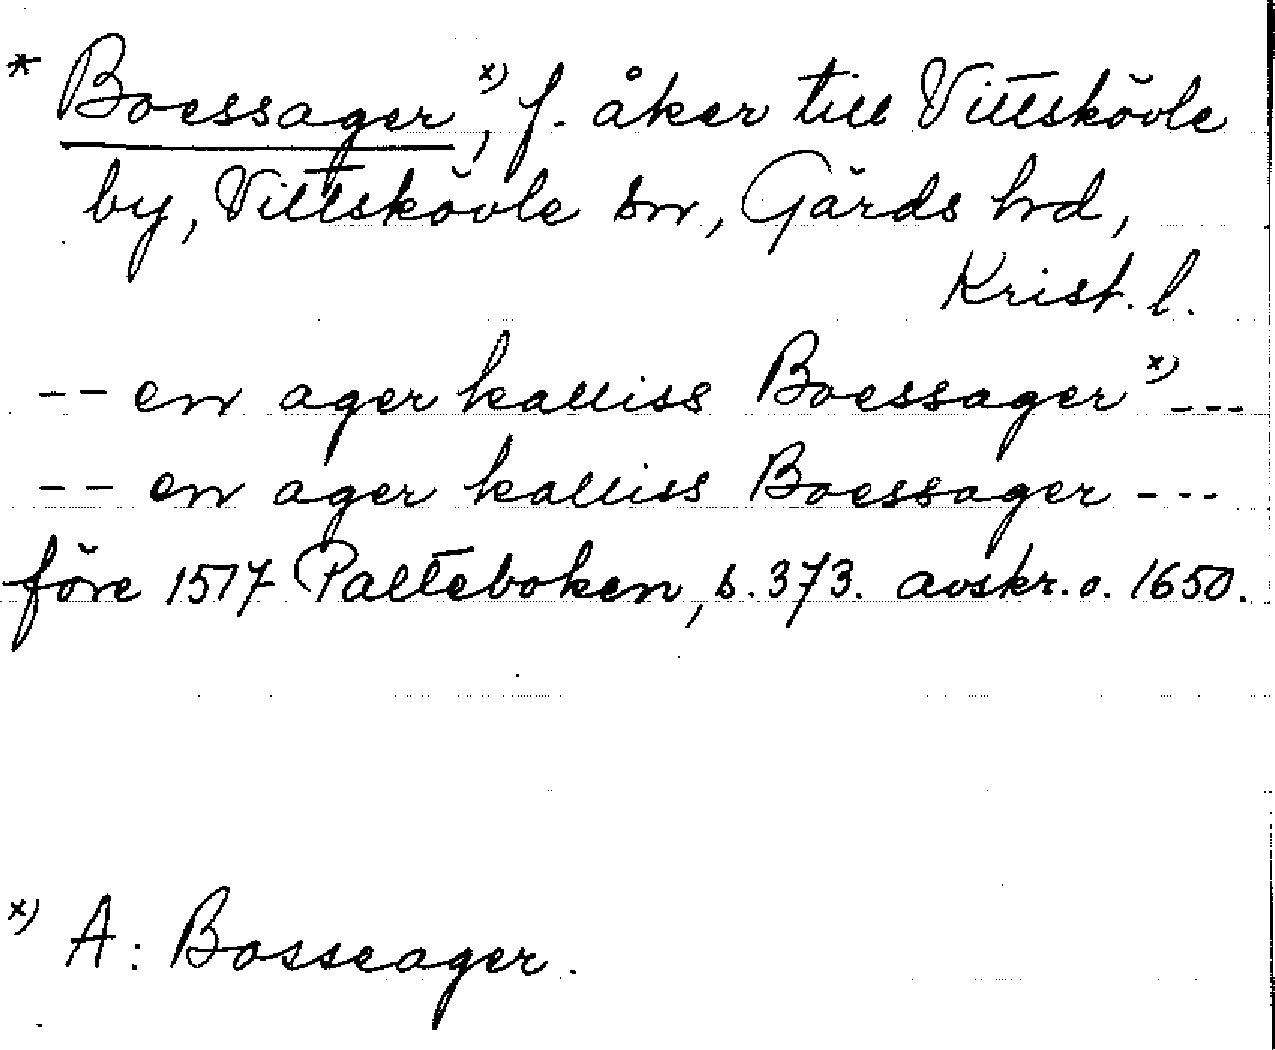 * Boessager x), f. åker till Vittskövle
by, Vittskövle sn, Gärds hd,
Krist. l.
-- en ager kalliss Boessager x) ---
-- en ager kalliss Boessager ---
före 1517 Palteboken, s. 373. avskr. o. 1650.
x) A: Bosseager.